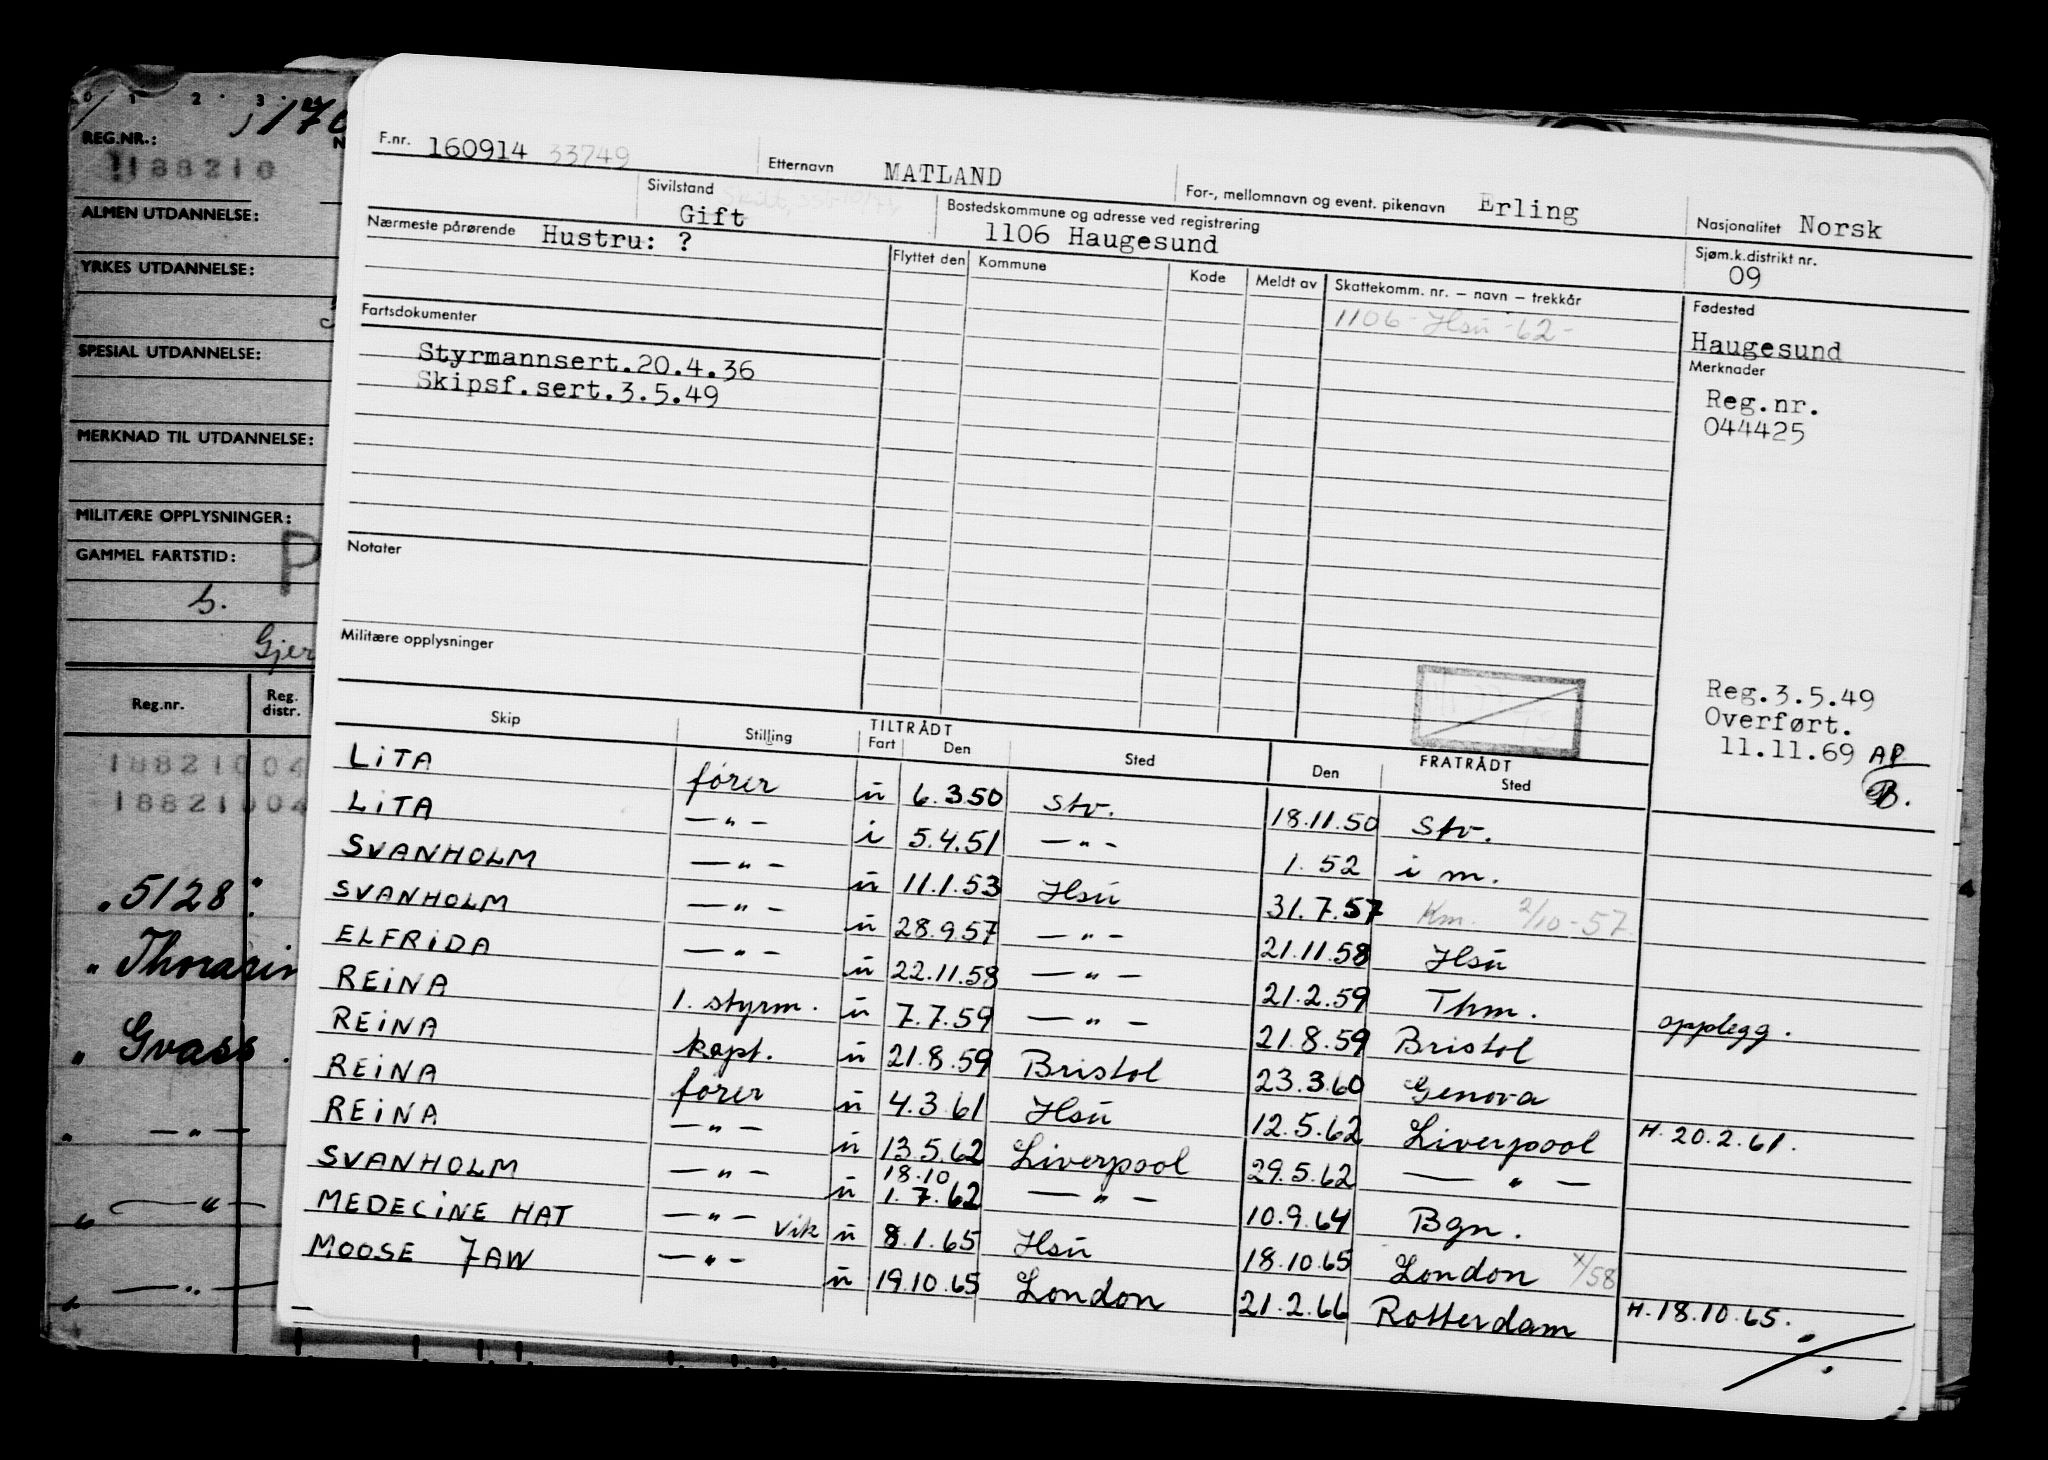 0 1 2 3
REG.NR.:
188210
ALMEN UTDANNELSE:
YRKES UTDANNELSE:
SPESIAL UTDANNELSE:
MERKNAD TIL UTDANNELSE:
MILITÆRE OPPLYSNINGER:
GAMMEL FARTSTID:
P
s.
Gjer
Reg.nr. Reg. distr.
18821004
18821004
"5128"
" Thorarin
" Gvass.
" — " —
" — " —
" — " —
F.nr. 160914 33749 Etternavn MATLAND For-, mellomnavn og event. pikenavn Erling Nasjonalitet Norsk
Sivilstand Gift Bostedskommune og adresse ved registrering 1106 Haugesund Sjøm.k.distrikt nr. 09
Nærmeste pårørende Hustru: ?
Flyttet den Kommune Kode Meldt av Skattekomm. nr. – navn – trekkår Fødested
1106 - Hsu - 62 -
Haugesund
Fartsdokumenter
Styrmannsert.20.4.36
Skipsf.sert.3.5.49
Merknader
Reg.nr.
044425
Notater
Militære opplysninger
Reg.3.5.49
Overført.
11.11.69 AP
B.
TILTRÅDT FRATRÅDT
Skip Stilling Fart Den Sted Den Sted
LITA fører u 6.3.50 Stv. 18.11.50 Stv.
LITA — " — i 5.4.51 — " — 1. 52 i m.
SVANHOLM — " — u 11.1.53 Hsu 31.7.57 Km. 2/10-57.
SVANHOLM — " — u 28.9.57 — " — 21.11.58 Hsu
ELFRIDA — " — u 22.11.58 — " — 21.2.59 Thm. opplegg.
REINA 1. styrm. u 7.7.59 — " — 21.8.59 Bristol
REINA kapt. u 21.8.59 Bristol 23.3.60 Genova
REINA fører u 4.3.61 Hsu 12.5.62 Liverpool H. 20.2.61.
REINA — " — u 13.5.62 Liverpool 29.5.62 — " —
18.10
SVANHOLM — " — u 1.7.62 — " — 10.9.64 Bgn.
MEDECINE HAT — " — vik u 8.1.65 Hsu 18.10.65 London x/58
MOOSE JAW — " — u 19.10.65 London 21.2.66 Rotterdam H.18.10.65.